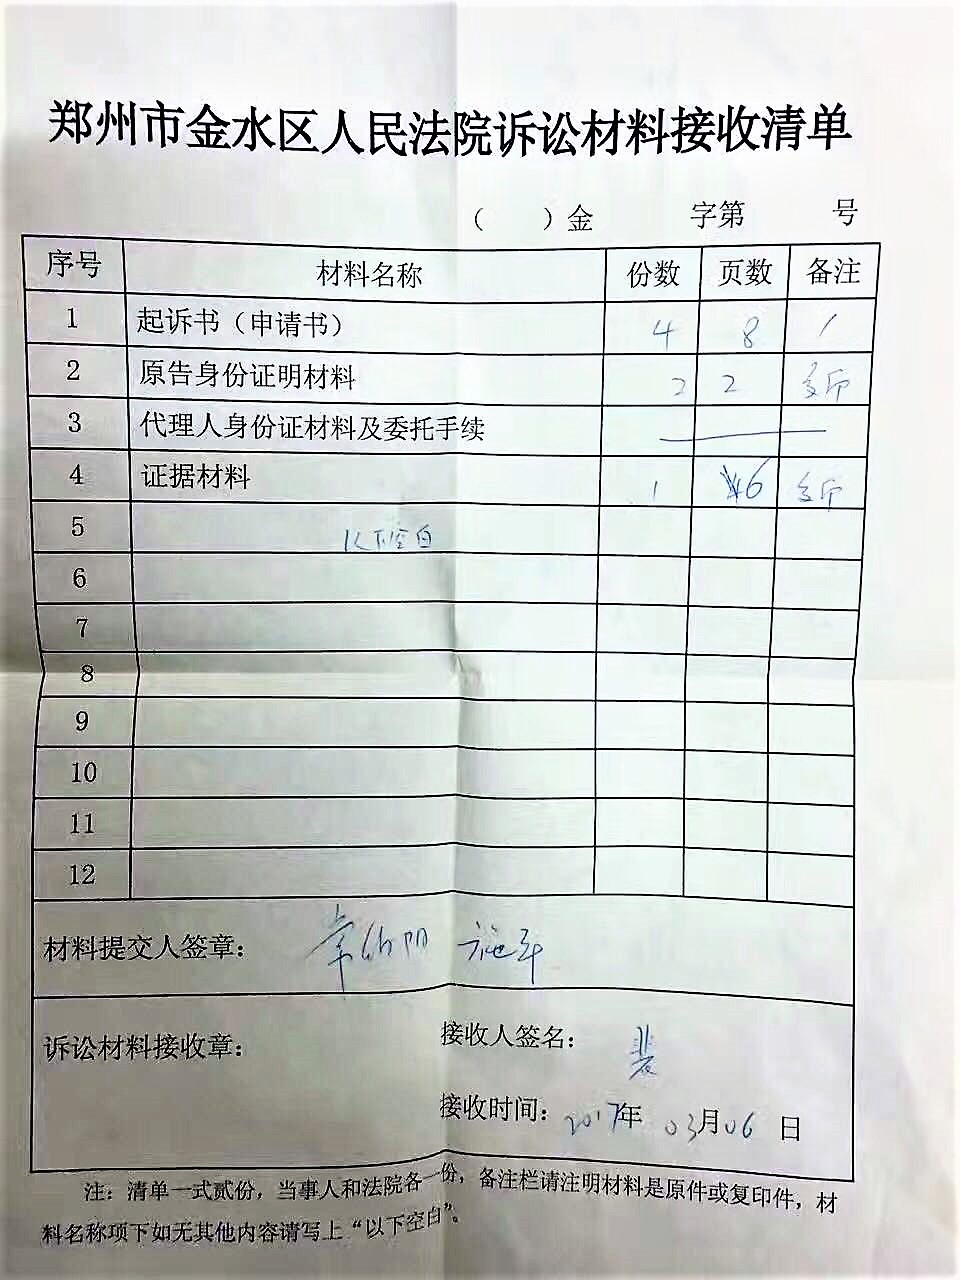 郑州市金水区人民法院诉讼材料接收清单
（ ）金 字第 号
序号 材料名称 份数 页数 备注
1 起诉书（申请书） 4 8 /
2 原告身份证明材料 2 2 复印
3 代理人身份证材料及委托手续
4 证据材料 1 6 复印
5 以下空白
6
7
8
9
10
11
12
材料提交人签章：
诉讼材料接收章：
接收人签名： 裴
接收时间： 2017年 03月06 日
注：清单一式贰份，当事人和法院各一份，备注栏请注明材料是原件或复印件，材
料名称项下如无其他内容请写上“以下空白”。